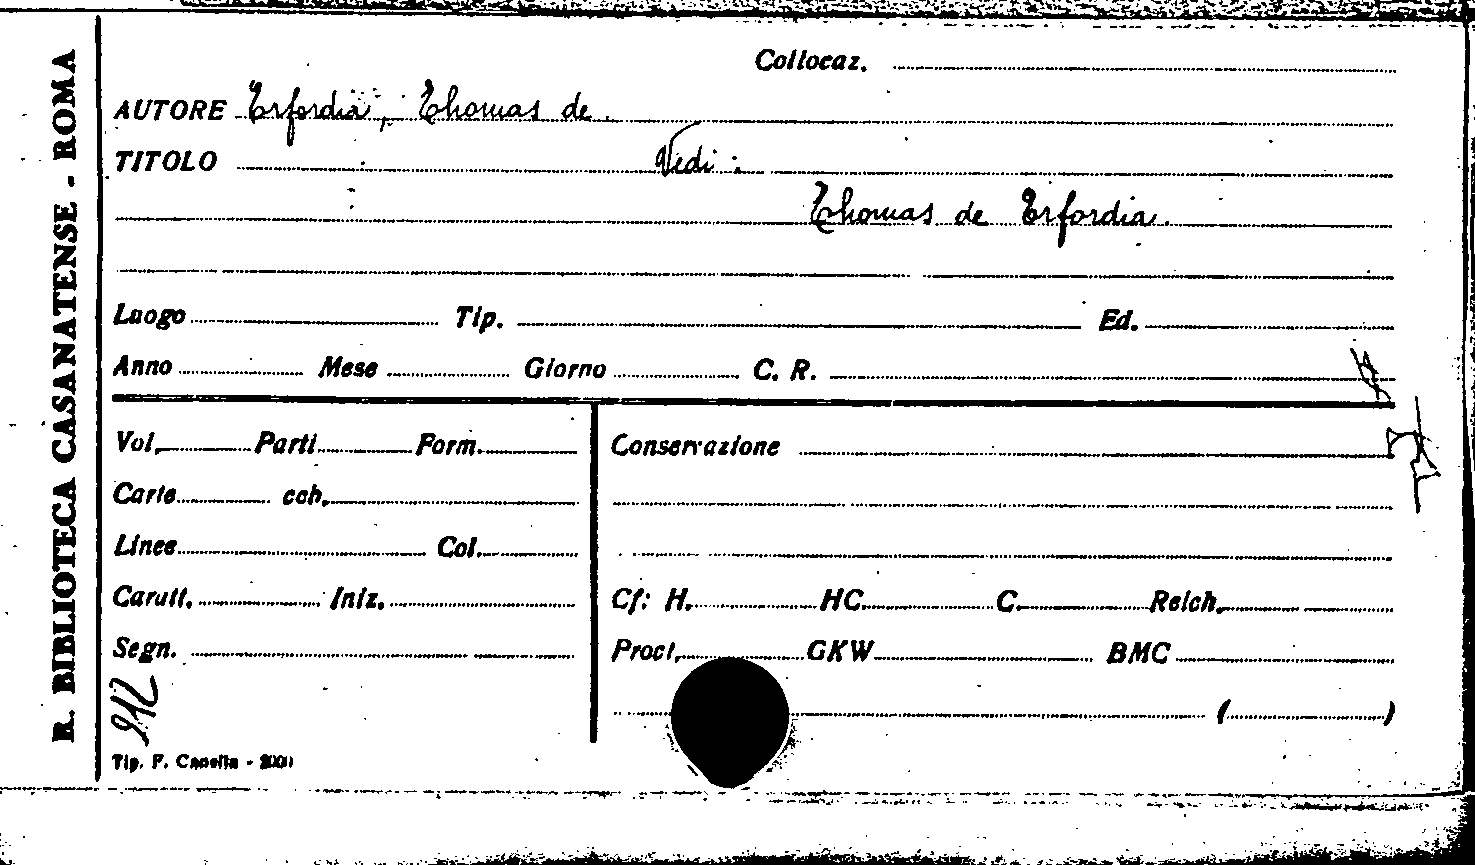 R. BIBLIOTECA CASANATENSE - ROMA
Collocaz.
AUTORE Erfordia, Thomas de.
TITOLO Vedi:
Thomas de Erfordia.
Luogo Tip. Ed.
Anno Mese Giorno C. R.
Vol. Parti Form.
Carte ccb.
Linee Col.
Caratt. Iniz.
Segn.
Conservazione
Cf: H. HC. C. Reich.
Proct. GKW BMC
( )
912
Tip. F. Canella -